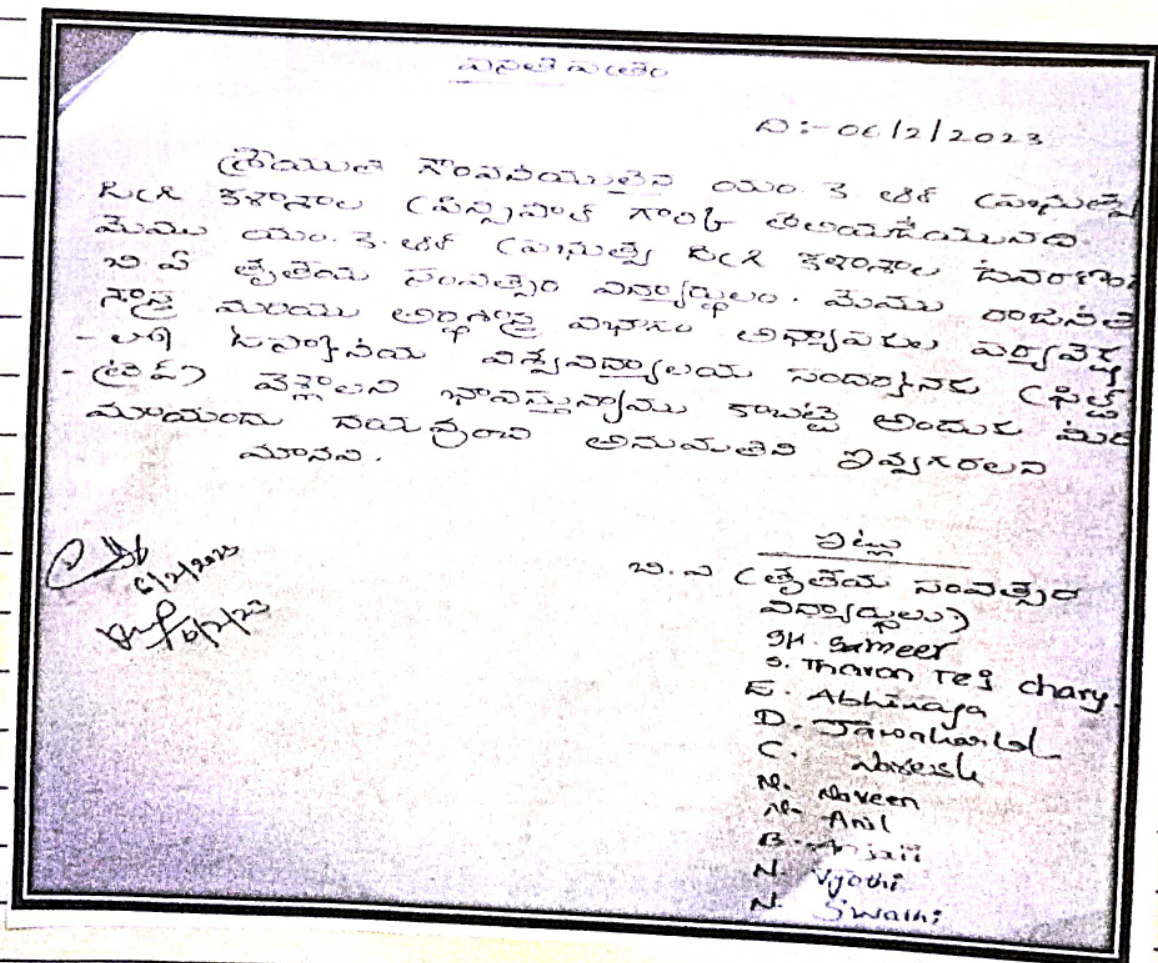 వినతి పత్రం
ది:-06/2/2023
శ్రీయుత గౌరవనీయులైన యం. కె. ఆర్ ప్రభుత్వ
డిగ్రీ కళాశాల ప్రిన్సిపాల్ గారికి తెలియజేయునది
మేము యం. కె. ఆర్ ప్రభుత్వ డిగ్రీ కళాశాల దేవరకొండ
బి.ఏ తృతీయ సంవత్సరం విద్యార్థులం. మేము రాజనీతి
శాస్త్ర మరియు అర్థశాస్త్ర విభాగం అధ్యాపకుల పర్యవేక్ష
-ణలో ఉస్మానియ విశ్వవిద్యాలయ సందర్శనకు (ఫిల్డ్
-ట్రిప్) వెళ్లాలని భావిస్తున్నాము కాబట్టి అందుకు మీరు
మాయందు దయవుంచి అనుమతిని ఇవ్వగరలని
మానవి.
ఇట్లు
బి.ఏ (తృతీయ సంవత్సర
విద్యార్థులు)
SK. Sameer
S. Tharon Tej chary
E. Abhinaya
D. Jawaharlal
C. Naresh
N. Naveen
N. Anil
B. Anjali
N. Vyothi
N. Swathi
6/2/2023
6/2/23